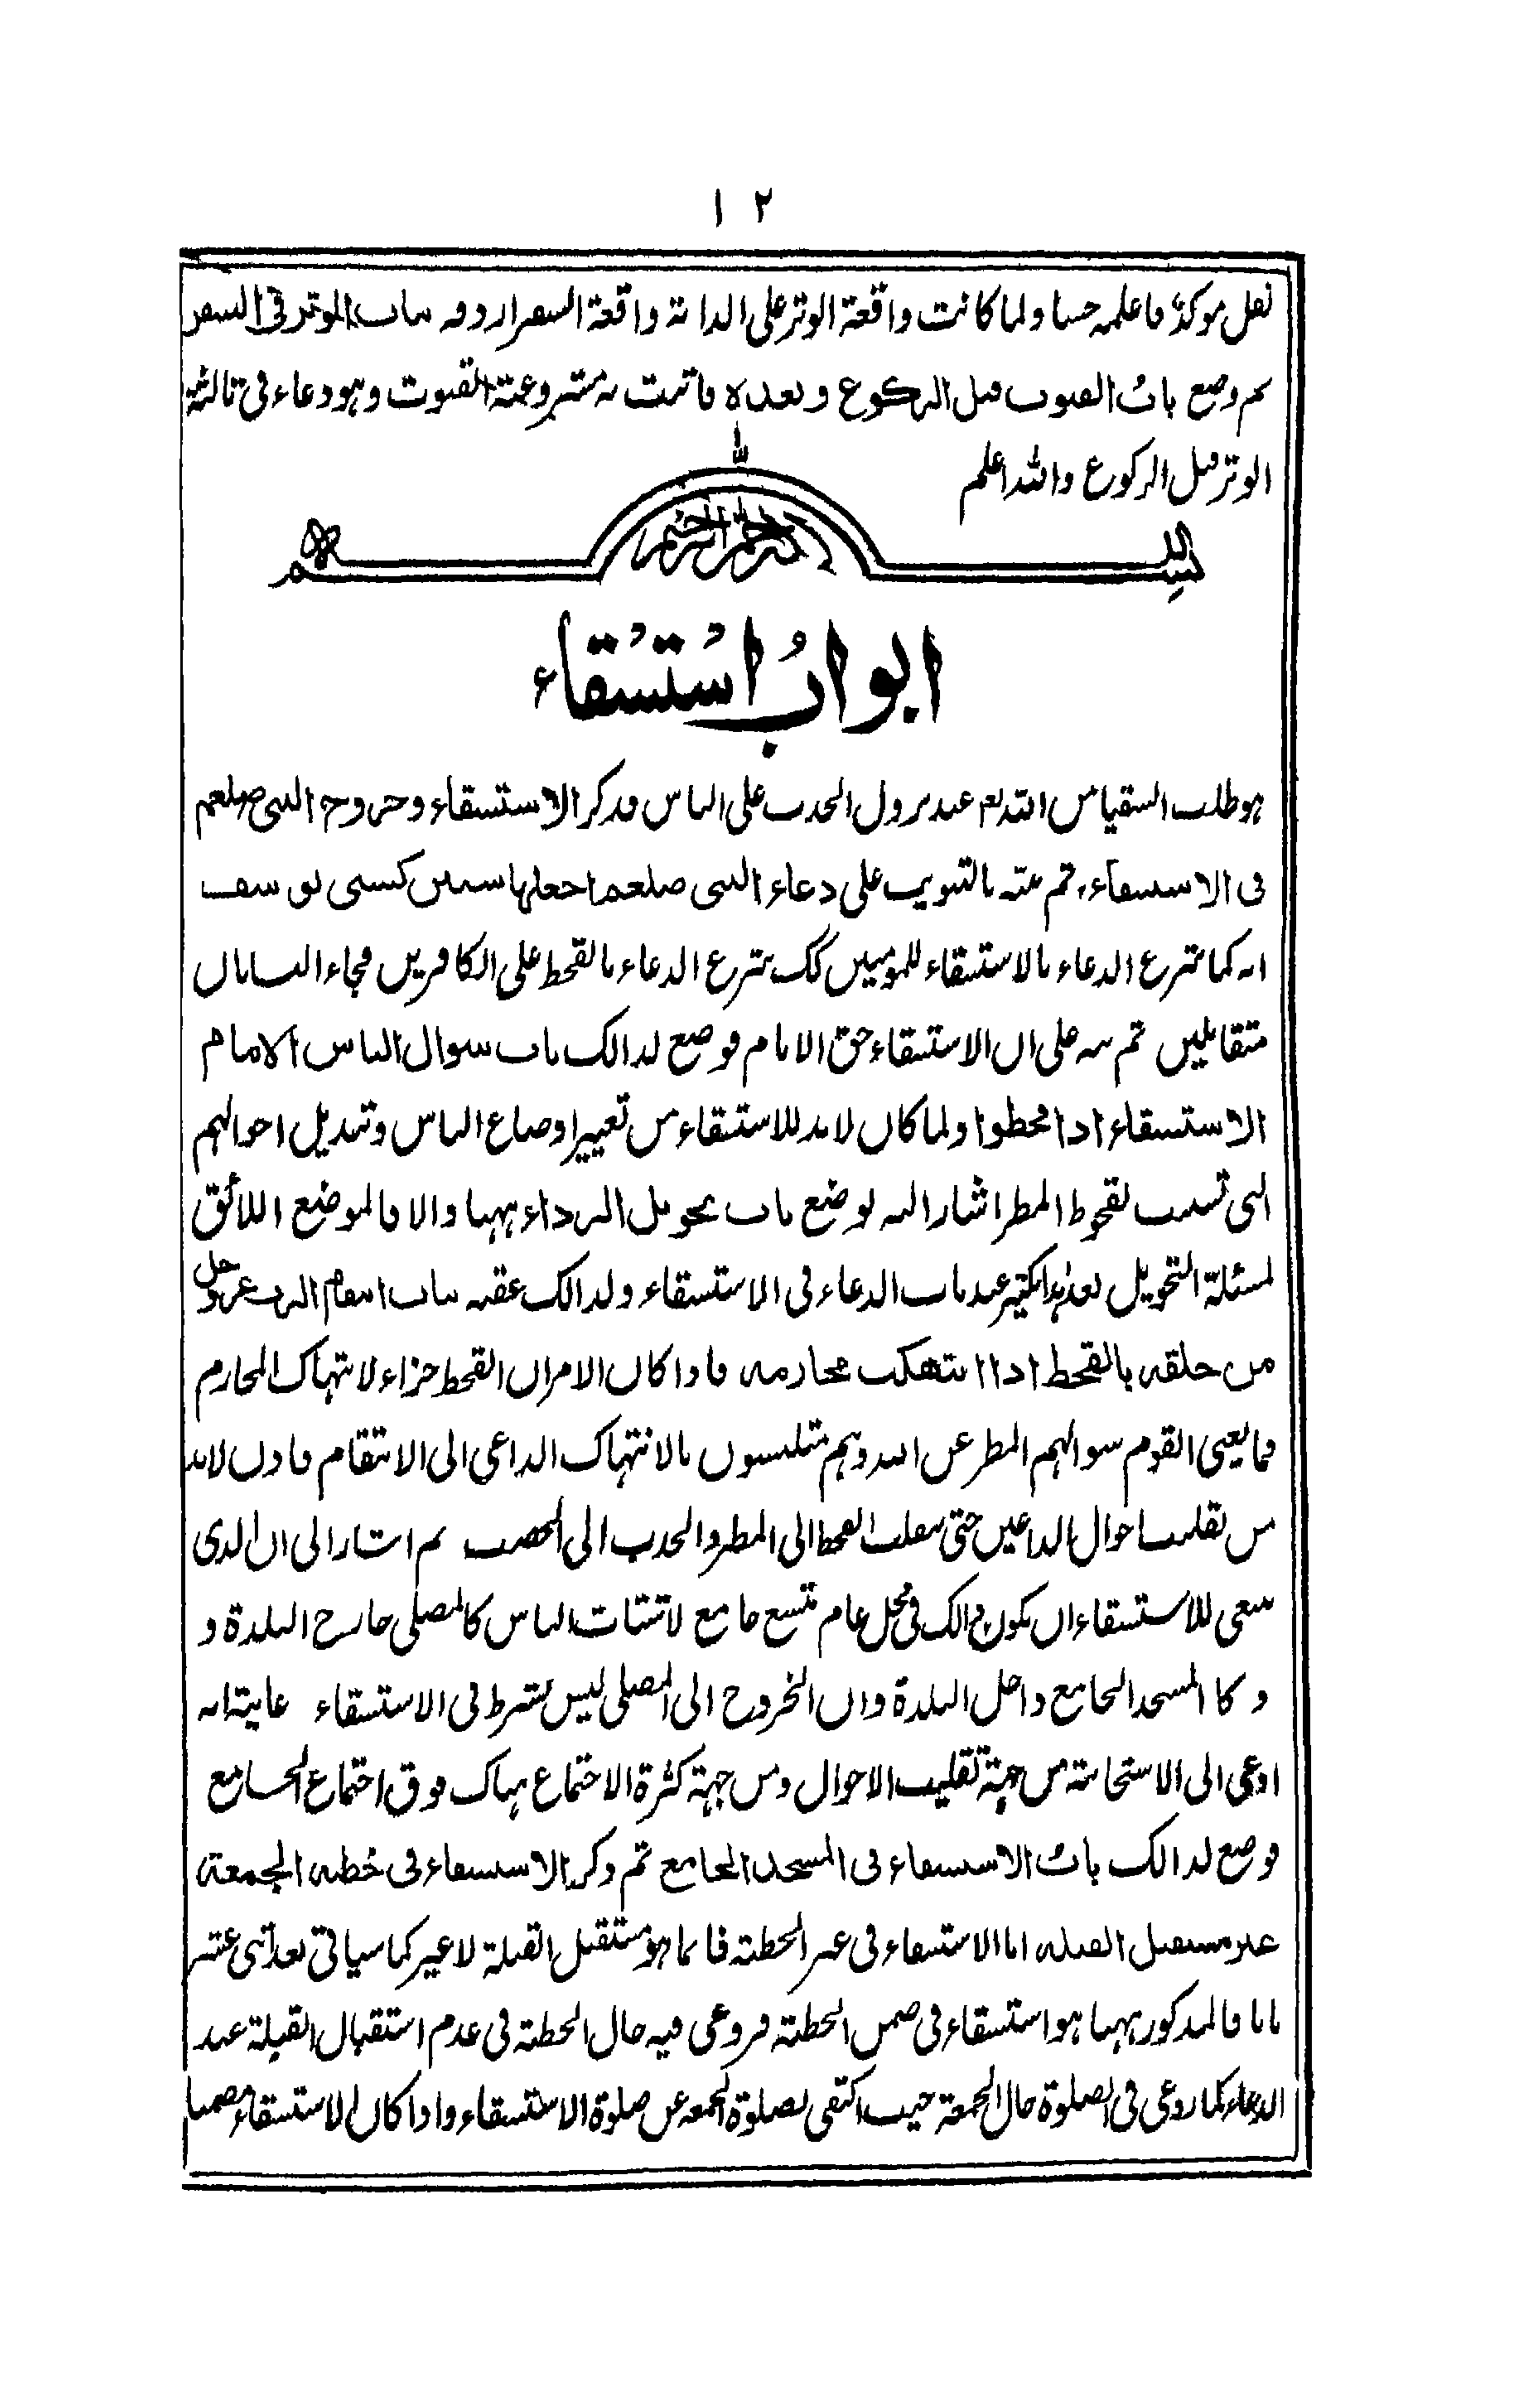 ١٢
نفل موكد فاعلمه حسنا ولما كانت واقعة الوتر على الدابة واقعة السفر اردفه بباب الوتر فى السفر
ثم وضع باب القنوت قبل الركوع وبعده فاثبت به مشروعية القنوت وهو دعاء فى ثالثة
الوتر قبل الركوع والله اعلم
بسم الله الرحمن الرحيم
ابواب استسقاء
هو طلب السقيا من الله تم عند نزول الجدب على الناس فذكر الاستسقاء وخروج النبى صلعم
فى الاستسقاء ثم نبه بالتبويب على دعاء النبى صلعم اجعلها سنين كسنى يوسف
انه كما شرع الدعاء بالاستسقاء للمومنين كك شرع الدعاء بالقحط على الكافرين فجاء البابان
متقابلين ثم نبه على ان الاستسقاء حق الامام فوضع لذالك باب سوال الناس الامام
الاستسقاء اذا قحطوا ولما كان لابد للاستسقاء من تغيير اوضاع الناس وتبديل احوالهم
التى تسبب لقحوط المطر اشار اليه بوضع باب تحويل الرداء ههنا والا فالموضع اللائق
لمسئلة التحويل بعد هذا بكثير عند باب الدعاء فى الاستسقاء ولذالك عقبه بباب انتقام الرب عز وجل
من خلقه بالقحط اذا انتهكت محارمه فاذا كان الامر ان القحط جزاء لانتهاك المحارم
فما يغنى القوم سوالهم المطر عن الله وهم متلبسون بالانتهاك الداعى الى الانتقام فاذن لابد
من تقلب احوال الداعين حتى ينقلب القحط الى المطر والجدب الى الخصب ثم اشار الى ان الذى
ينبغى للاستسقاء ان يكون ذالك فى محل عام متسع جامع لاشتات الناس كالمصلى خارج البلدة و
و كا المسجد الجامع داخل البلدة وان الخروج الى المصلى ليس بشرط فى الاستسقاء غايته انه
ادعى الى الاستجابة من جهة تقليب الاحوال ومن جهة كثرة الاجتماع هناك فوق اجتماع الجامع
فوضع لذالك باب الاستسقاء فى المسجد الجامع ثم ذكر الاستسقاء فى خطبه الجمعة
غير مستقبل القبله اما الاستسقاء فى غير الخطبة فانما هو مستقبل القبلة لا غير كما سياتى بعد اثنى عشر
بابا فالمذكور ههنا هو استسقاء فى ضمن الخطبة فروعى فيه حال الخطبة فى عدم استقبال القبلة عند
الدعاء كما روعى فى الصلوة حال الجمعة حيث اكتفى بصلوة الجمعه عن صلوة الاستسقاء واذا كان الاستسقاء ضمنا